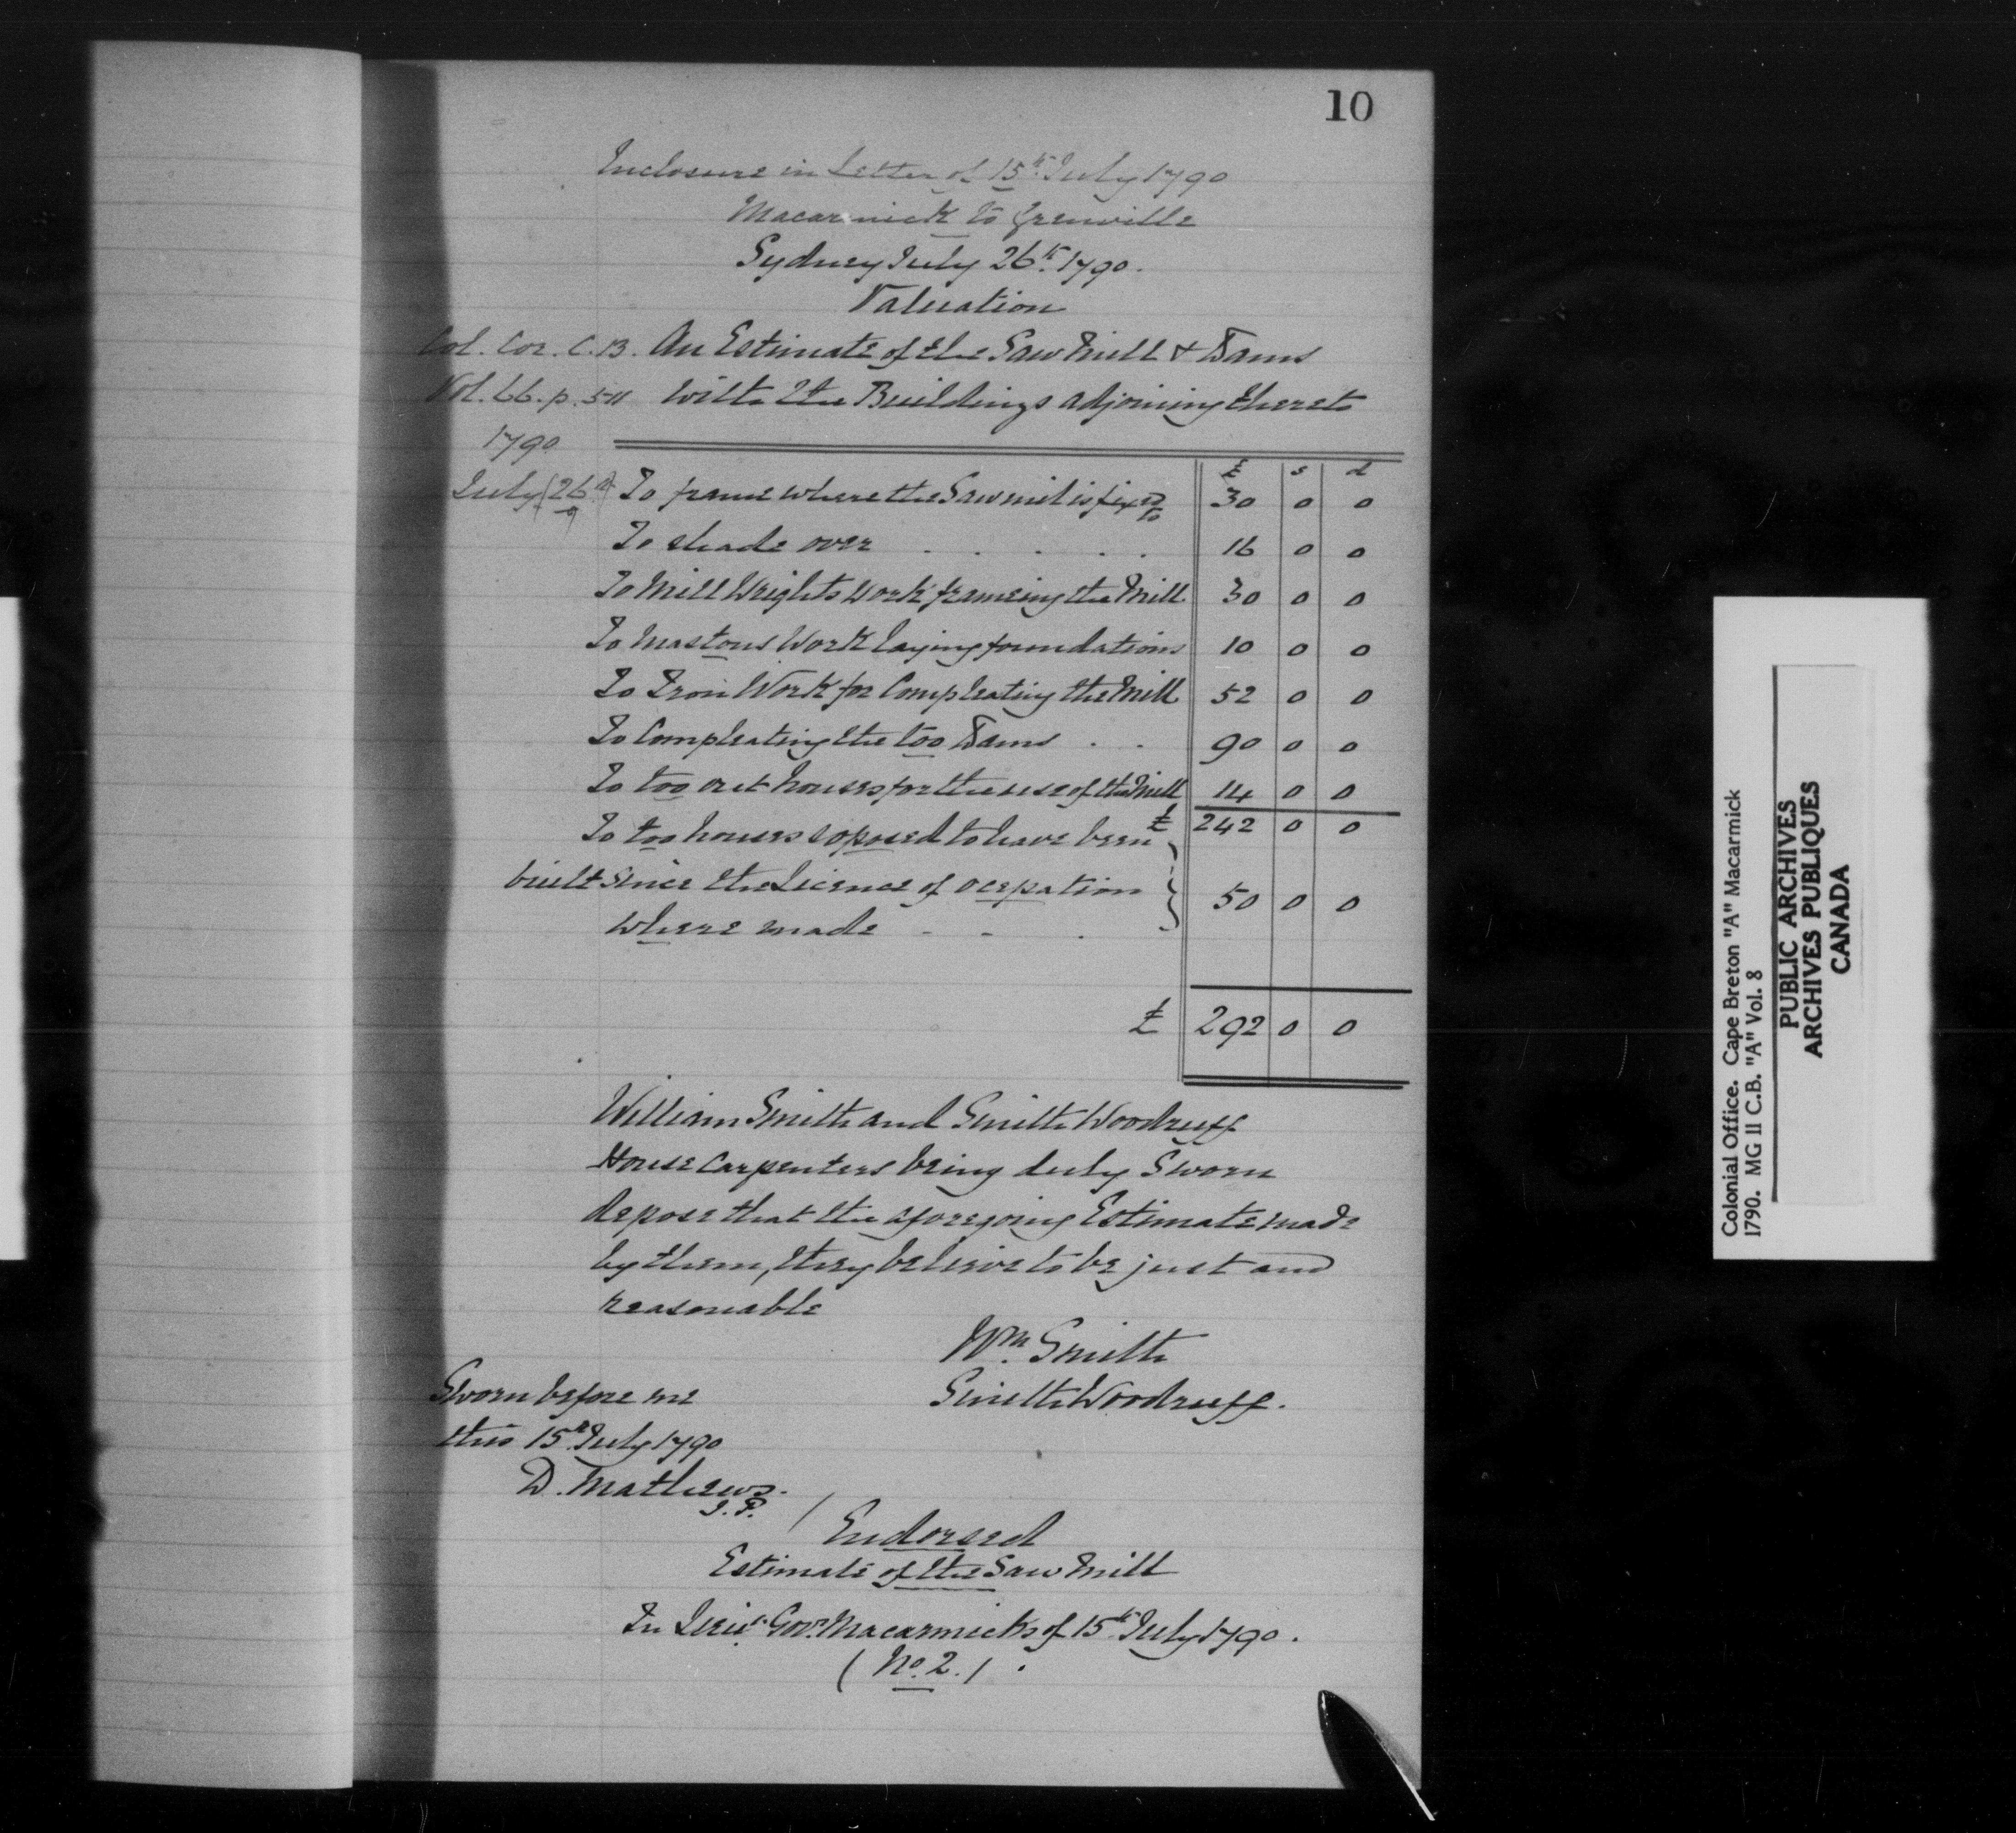 10
Inclosure in Letter of 15th July 1790
Macarmick to Grenville
Sydney July 26th 1790.
Valuation
Col. Cor. C.B. An Estimate of the Saw Mill & Dams
Vol. 66. p. 511 with the Buildings adjoining thereto
1790
£ s d
July (26th) To frame where the Sawmil is fixed to 30 0 0
To shade over . . . . . 16 0 0
To Mill Wrights Work frameing the Mill 30 0 0
To Mastons Work laying foundations 10 0 0
To Iron Work for Compleating the Mill 52 0 0
To Compleating the too Dams . . 90 0 0
To too out houses for the use of the Mill 14 0 0
£ 242 0 0
To too houses soposed to have been
built since the Licence of ocepation 50 0 0
where made - - .
£ 292 0 0
William Smith and Smith Woodruff
House Carpenters being duly Sworn
depose that the aforegoing Estimate made
by them, they beleive to be just and
reasonable
Wm. Smith
Smith Woodruff.
Sworn before me
this 15th July 1790
D. Mathews.
J.P.
Endorsed
Estimate of the Saw Mill
In Lieut. Govr. Macarmicks of 15th July 1790.
(No. 2.)
Colonial Office. Cape Breton "A" Macarmick
1790. MG 11 C.B. "A" Vol. 8
PUBLIC ARCHIVES
ARCHIVES PUBLIQUES
CANADA